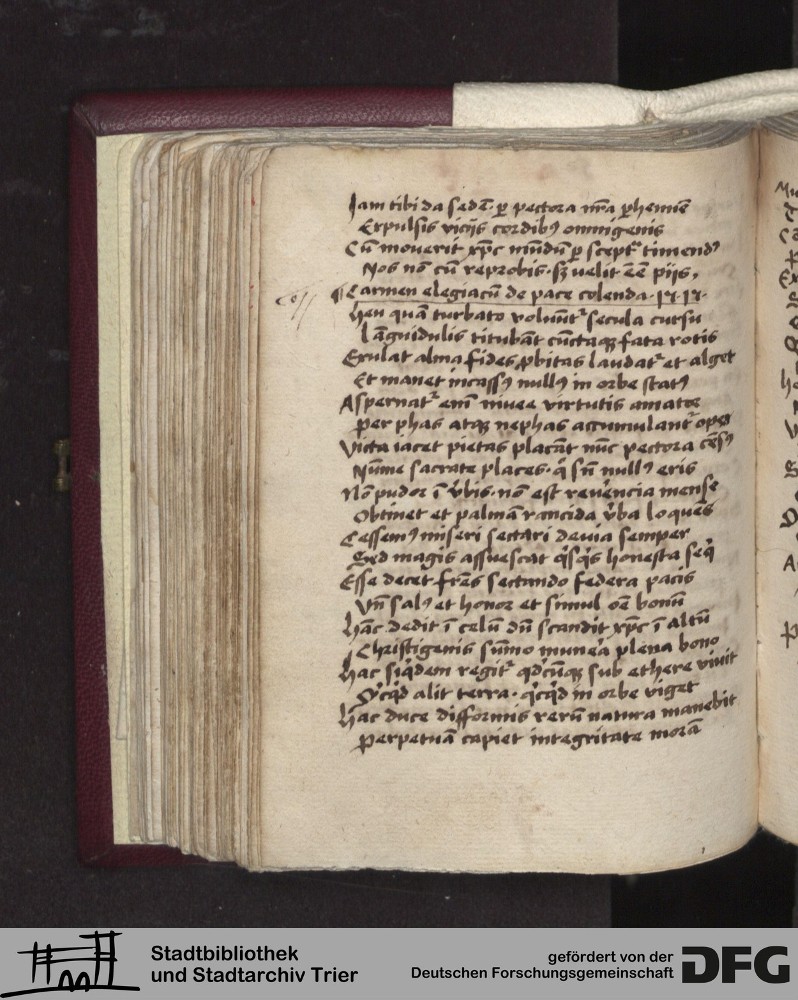 Iam tibi da sedē ꝑ pectora nr̄a ꝑhennē
Expulsis vicijs cordibꝰ omnigenis
Cū mouerit xp̄c mūdū ꝑ sceptᷣ timendꝰ
Nos nō cū reprobis sꝫ velit ēe pijs,
Carmen elegiacū de pace colenda
Heu quā turbato voluūtᷣ secula cursu
Lāguidulis titubāt cūctaqꝫ fata rotis
Exulat alma fides ꝓbitas laudatᷣ et alget
Et manet incassꝰ nullꝰ in orbe statꝰ
Aspernatᷣ em̄ niuee virtutis amator
Per phas atqꝫ nephas accumulantᷣ opes
Victa iacet pietas placāt nūc pectora
Nūme sacrate places nullꝰ eris
Nō pudor ī v̄bis nō est reuēncia mense
Obtinet et palmā rancida v̄ba loquēs
Cessemꝰ miseri sectari deuia semper
Sed magis assuescat q̄sq̄s honesta seq̄
Esse decet fr̄es sectando federa pacis
Vn̄ salꝰ et honor et simul oē bonū
Hāc dedit ī celū dū scandit xp̄c ī altū
Christigenis sūmo munēa plena bono
Hac siq̄dem regitᷣ qd̄cūqꝫ sub ethere viuit
Qͥcq̄d alit terra q̄cq̄d in orbe viget
Hac duce difformis rerū natura manebit
Perpetuā capiet integritate morā
Stadtbibliothek
und Stadtarchiv Trier
gefördert von der
Deutschen Forschungsgemeinschaft
DFG